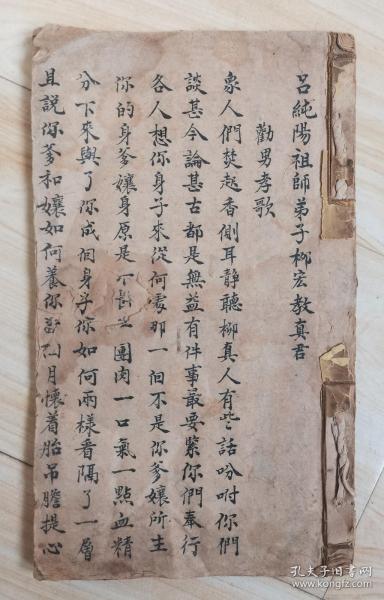 呂純陽祖師弟子柳宏教真君
勸男孝歌
象人們焚起香側耳靜聽柳真人有些話吩咐你們
談甚今論甚古都是無益有件事最要緊你們奉行
各人想你身子來從何處那一個不是你爹孃所生
你的身爹孃身原是團肉一口氣一點血精
分下來與了你成個身子你如何兩樣看隔了一層
且說你爹和孃如何養你月懷着胎吊膽提心
孔夫子旧书网
www.kongfz.com